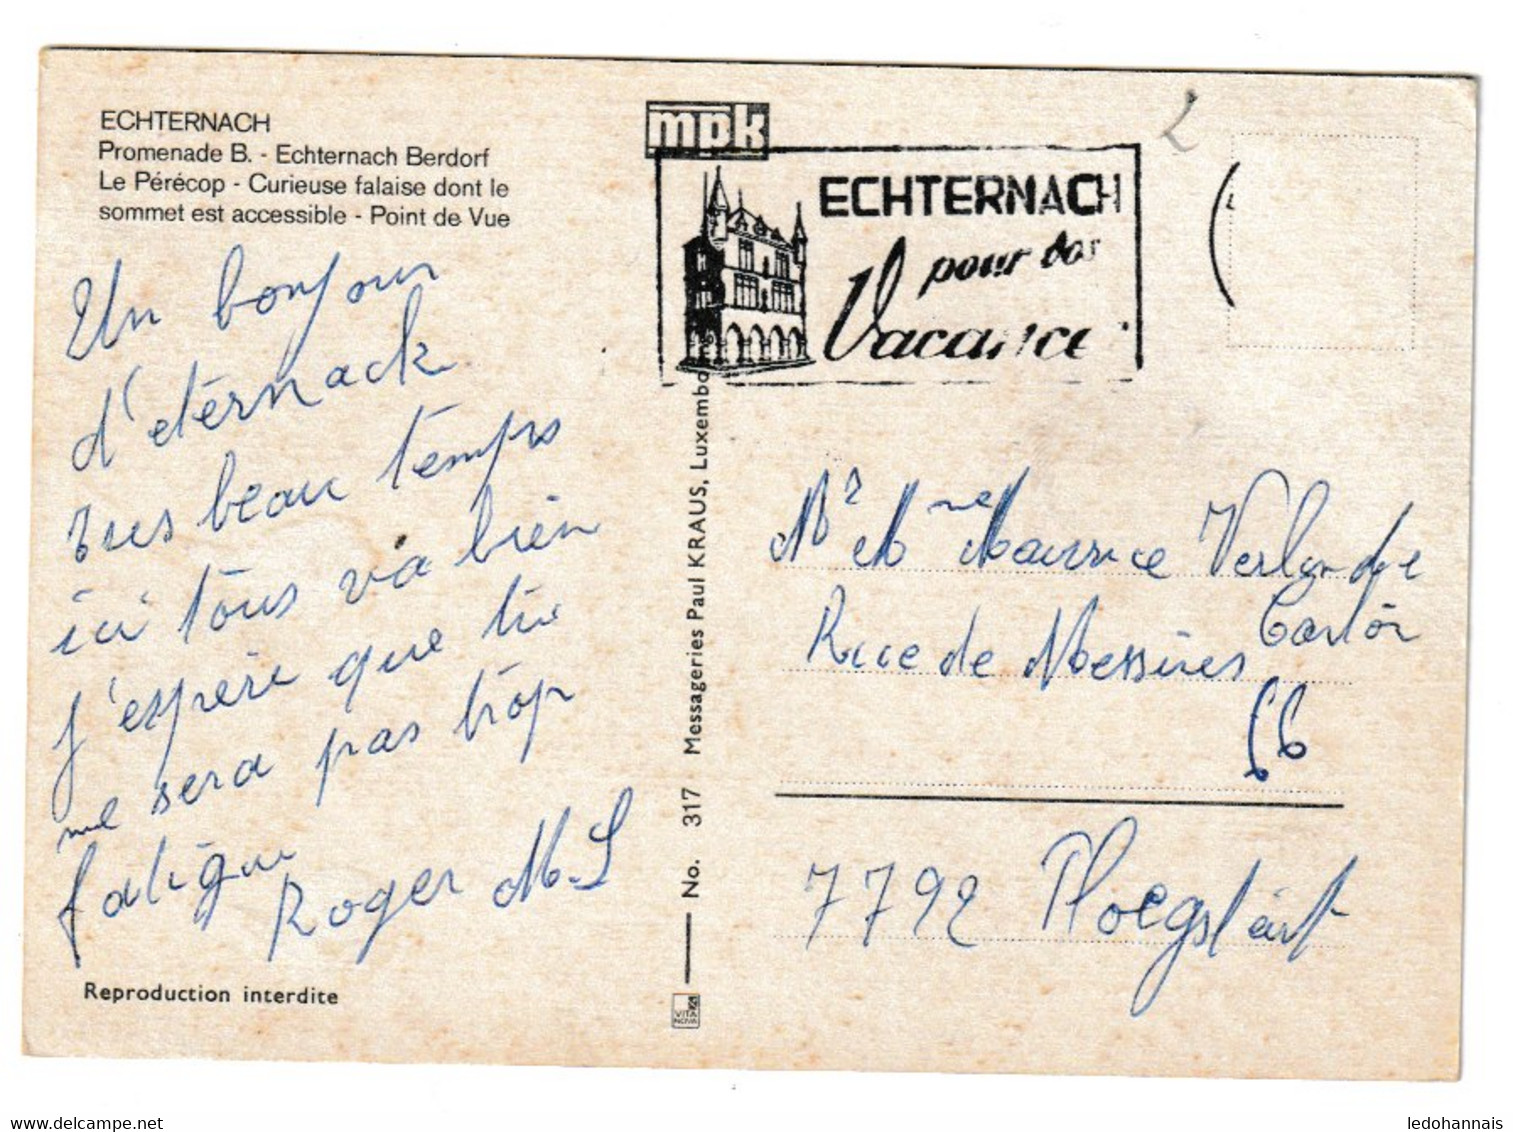 ECHTERNACH
Promenade B. - Echternach Berdorf
Le Pérécop - Curieuse falaise dont le
sommet est accessible - Point de Vue
Un bonjour
d'eternack
tres beau temps
ici tous va bien
j'espère que tu
me sera pas trop
fatigue
Roger M.L
Reproduction interdite
No. 317 Messageries Paul KRAUS, Luxembourg
VITA
NOVA
mpk
ECHTERNACH
pour vos
Vacance
Mr Mme Maurice
Rue de Messines
66
7792 Ploegstert
delcampe.net
ledohannais